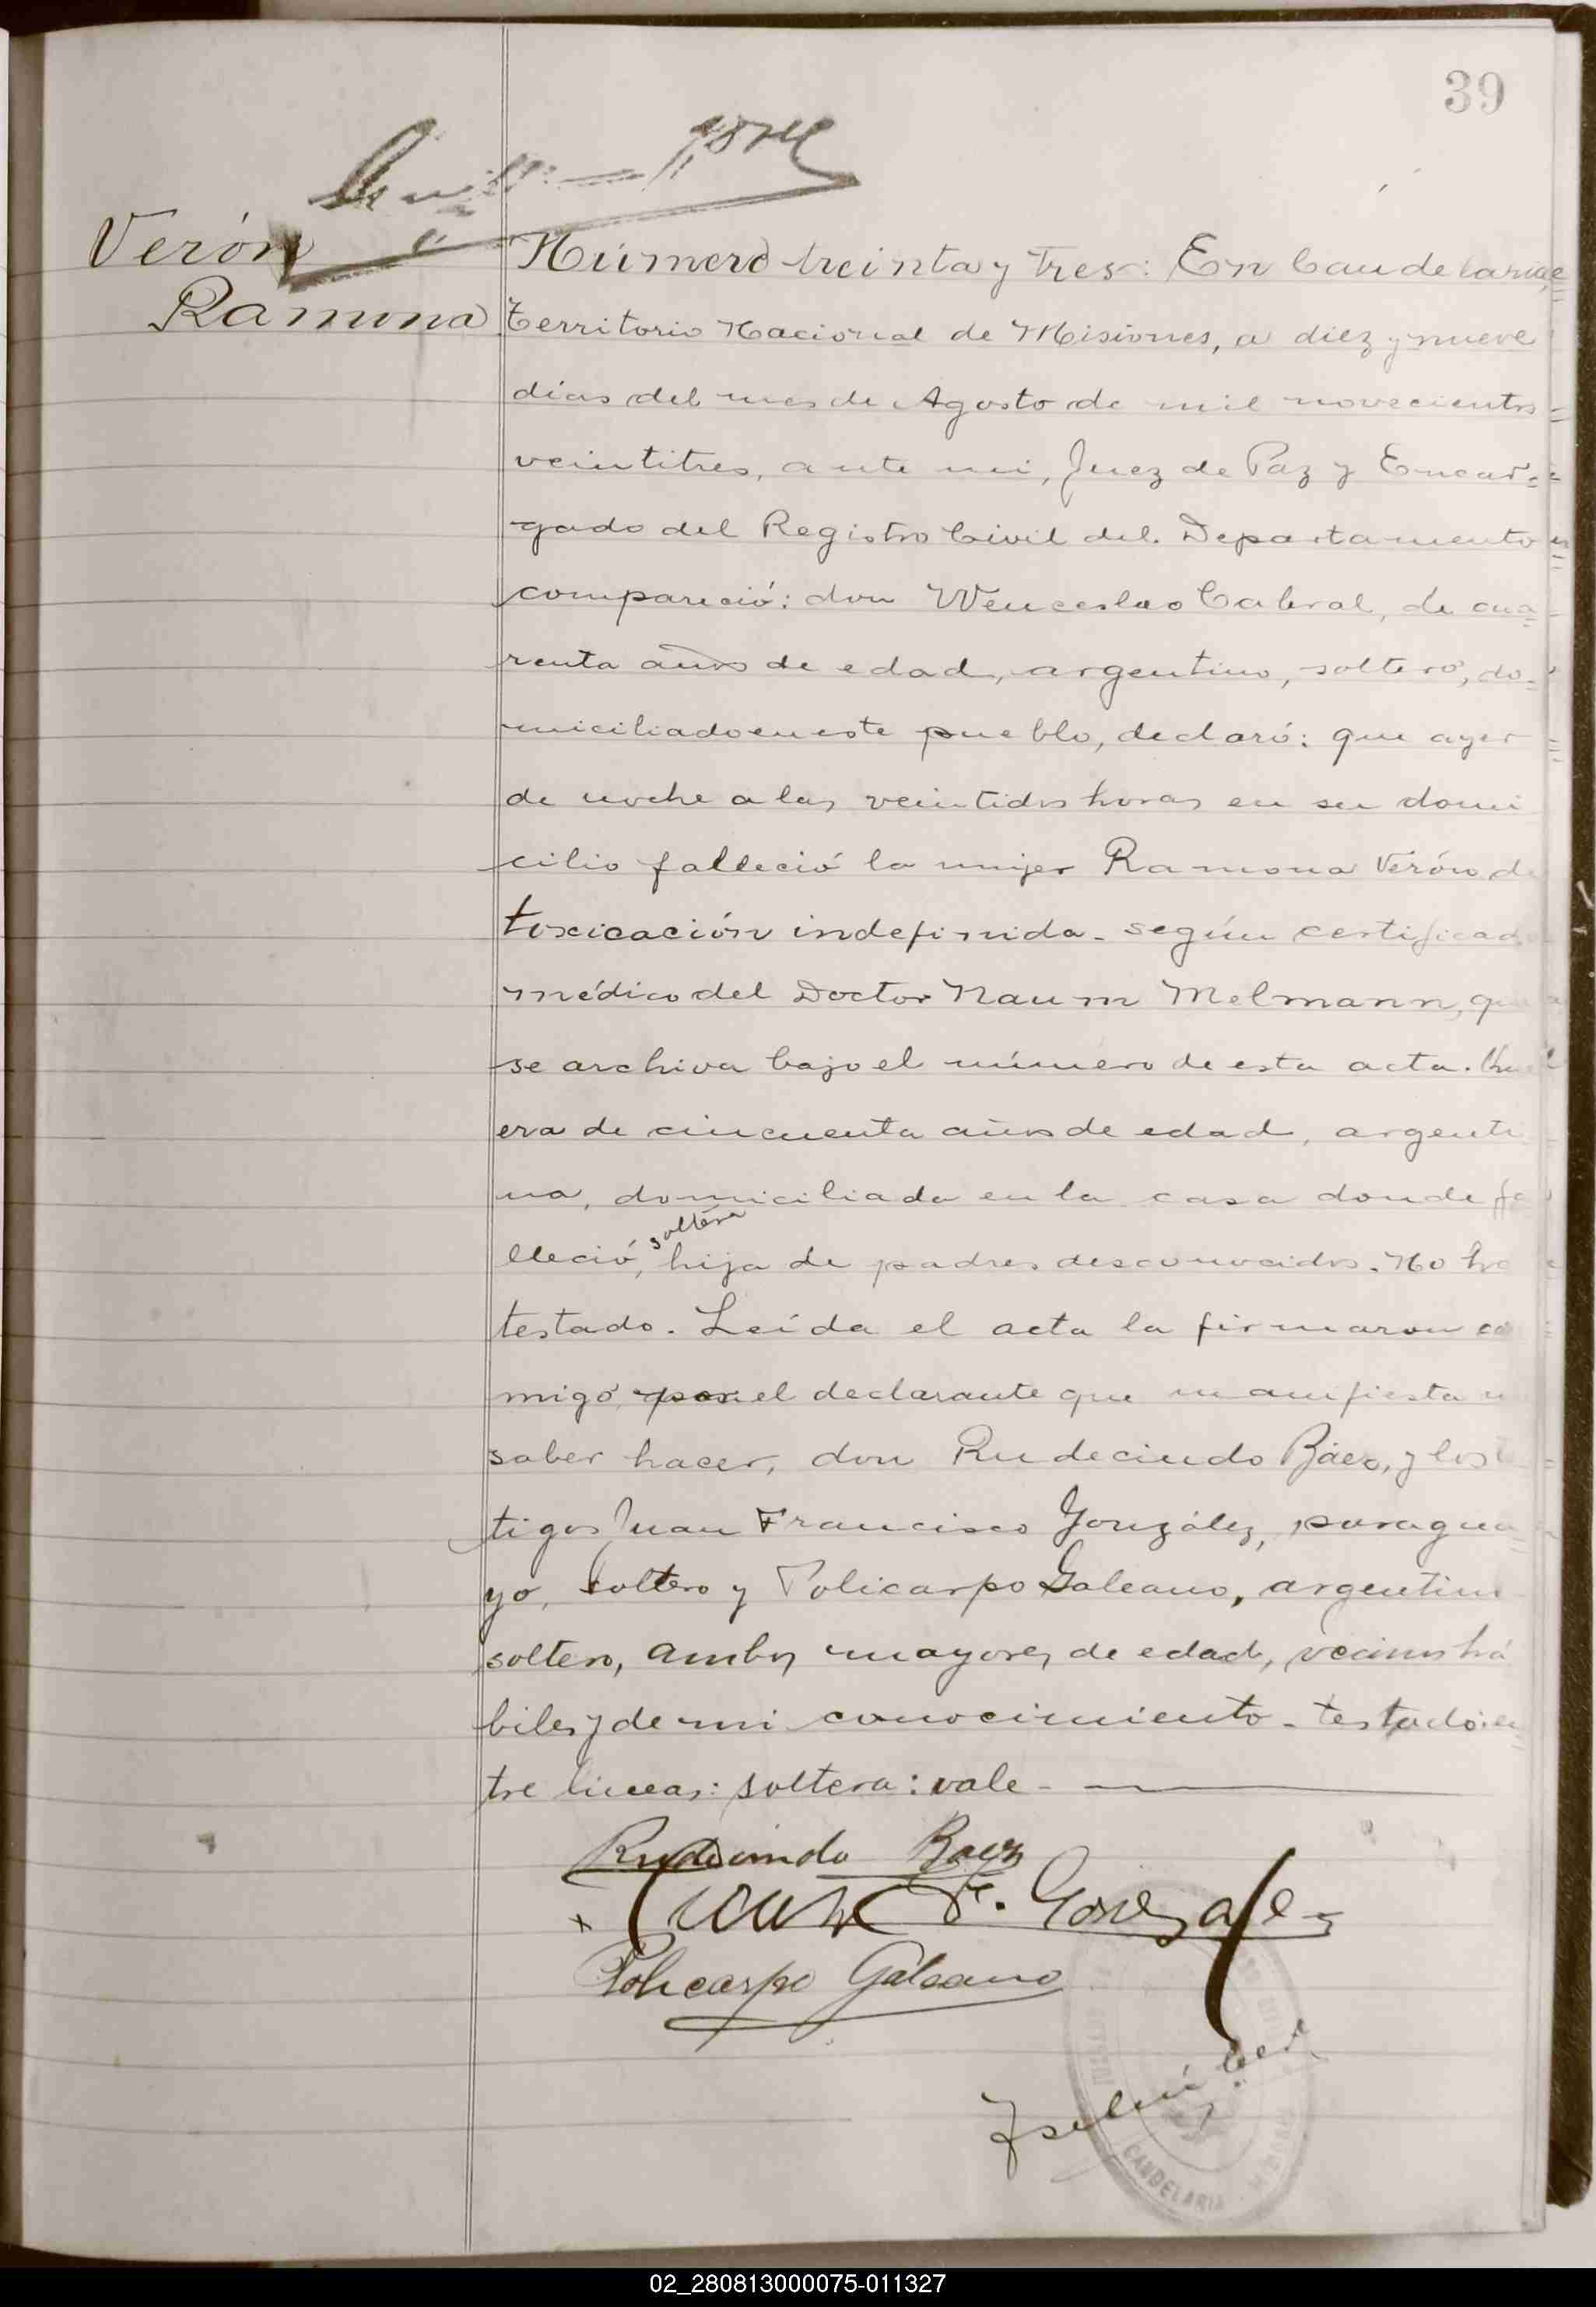 39
Verón
Ramona
Número treinta y tres: En Candelaria,
territorio Nacional de Misiones, a diez y nueve
dias del mes de Agosto de mil novecientos
veintitres, ante mi, Juez de Paz y Encar=
gado del Registro Civil del Departamento
compareció: don Wenceslao Cabral, de cua=
renta años de edad, argentino, soltero, do=
miciliado en este pueblo, declaró: que ayer
de noche a las veintidos horas en su domi
cilio falleció la mujer Ramona Verón de
toxicación indefinida - según certificado
médico del Doctor Naum Melmann, que
se archiva bajo el número de esta acta. Que
era de cincuenta años de edad, argenti
na, domiciliada en la casa donde fa
soltera
lleció, hija de padres desconocidos. No ha
testado. Leída el acta la firmaron con
migo, por el declarante que manifiesta no
saber hacer, don Rudecindo Báez, y los
tigos Juan Francisco González, paragua=
yo, soltero y Policarpo Galeano, argentino
soltero, ambos mayores de edad, vecinos há
biles y de mi conocimiento - testado: en=
tre lineas: soltera: vale -
Rudecindo Baez
Juan F. Gonzalez
Policarpo Galeano
CANDELARIA
02_280813000075-011327